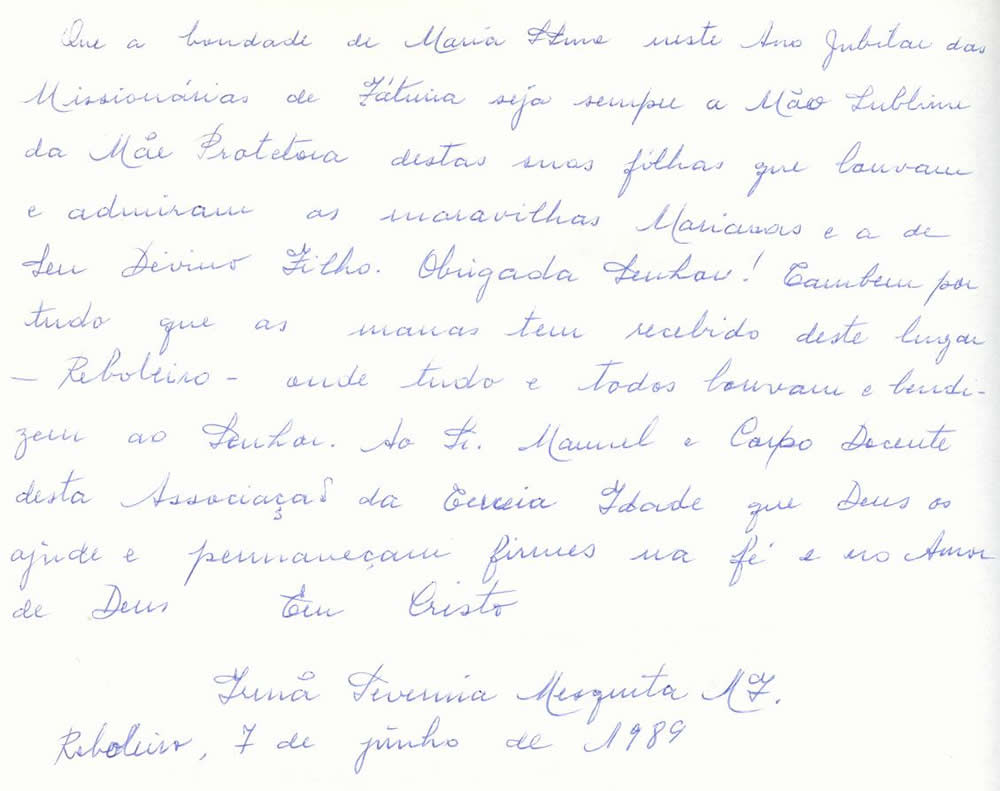 Que a bondade de Maria neste Ano Jubilar das
Missionárias de Fátima seja sempre a Mão Sublime
da Mãe Protetora destas suas filhas que louvam
e admiram as maravilhas Marianas e a de
Seu Divino Filho. Obrigada Senhor! Tambem por
tudo que as manas tem recebido deste lugar
- Reboleiro - onde tudo e todos louvam e bendi-
zem ao Senhor. Ao Sr. Manuel e Corpo Docente
desta Associação da Terceia Idade que Deus os
ajude e permaneçam firmes na fé e no Amor
de Deus Em Cristo
Irmã Mesquita M.F.
Reboleiro, 7 de júnho de 1989